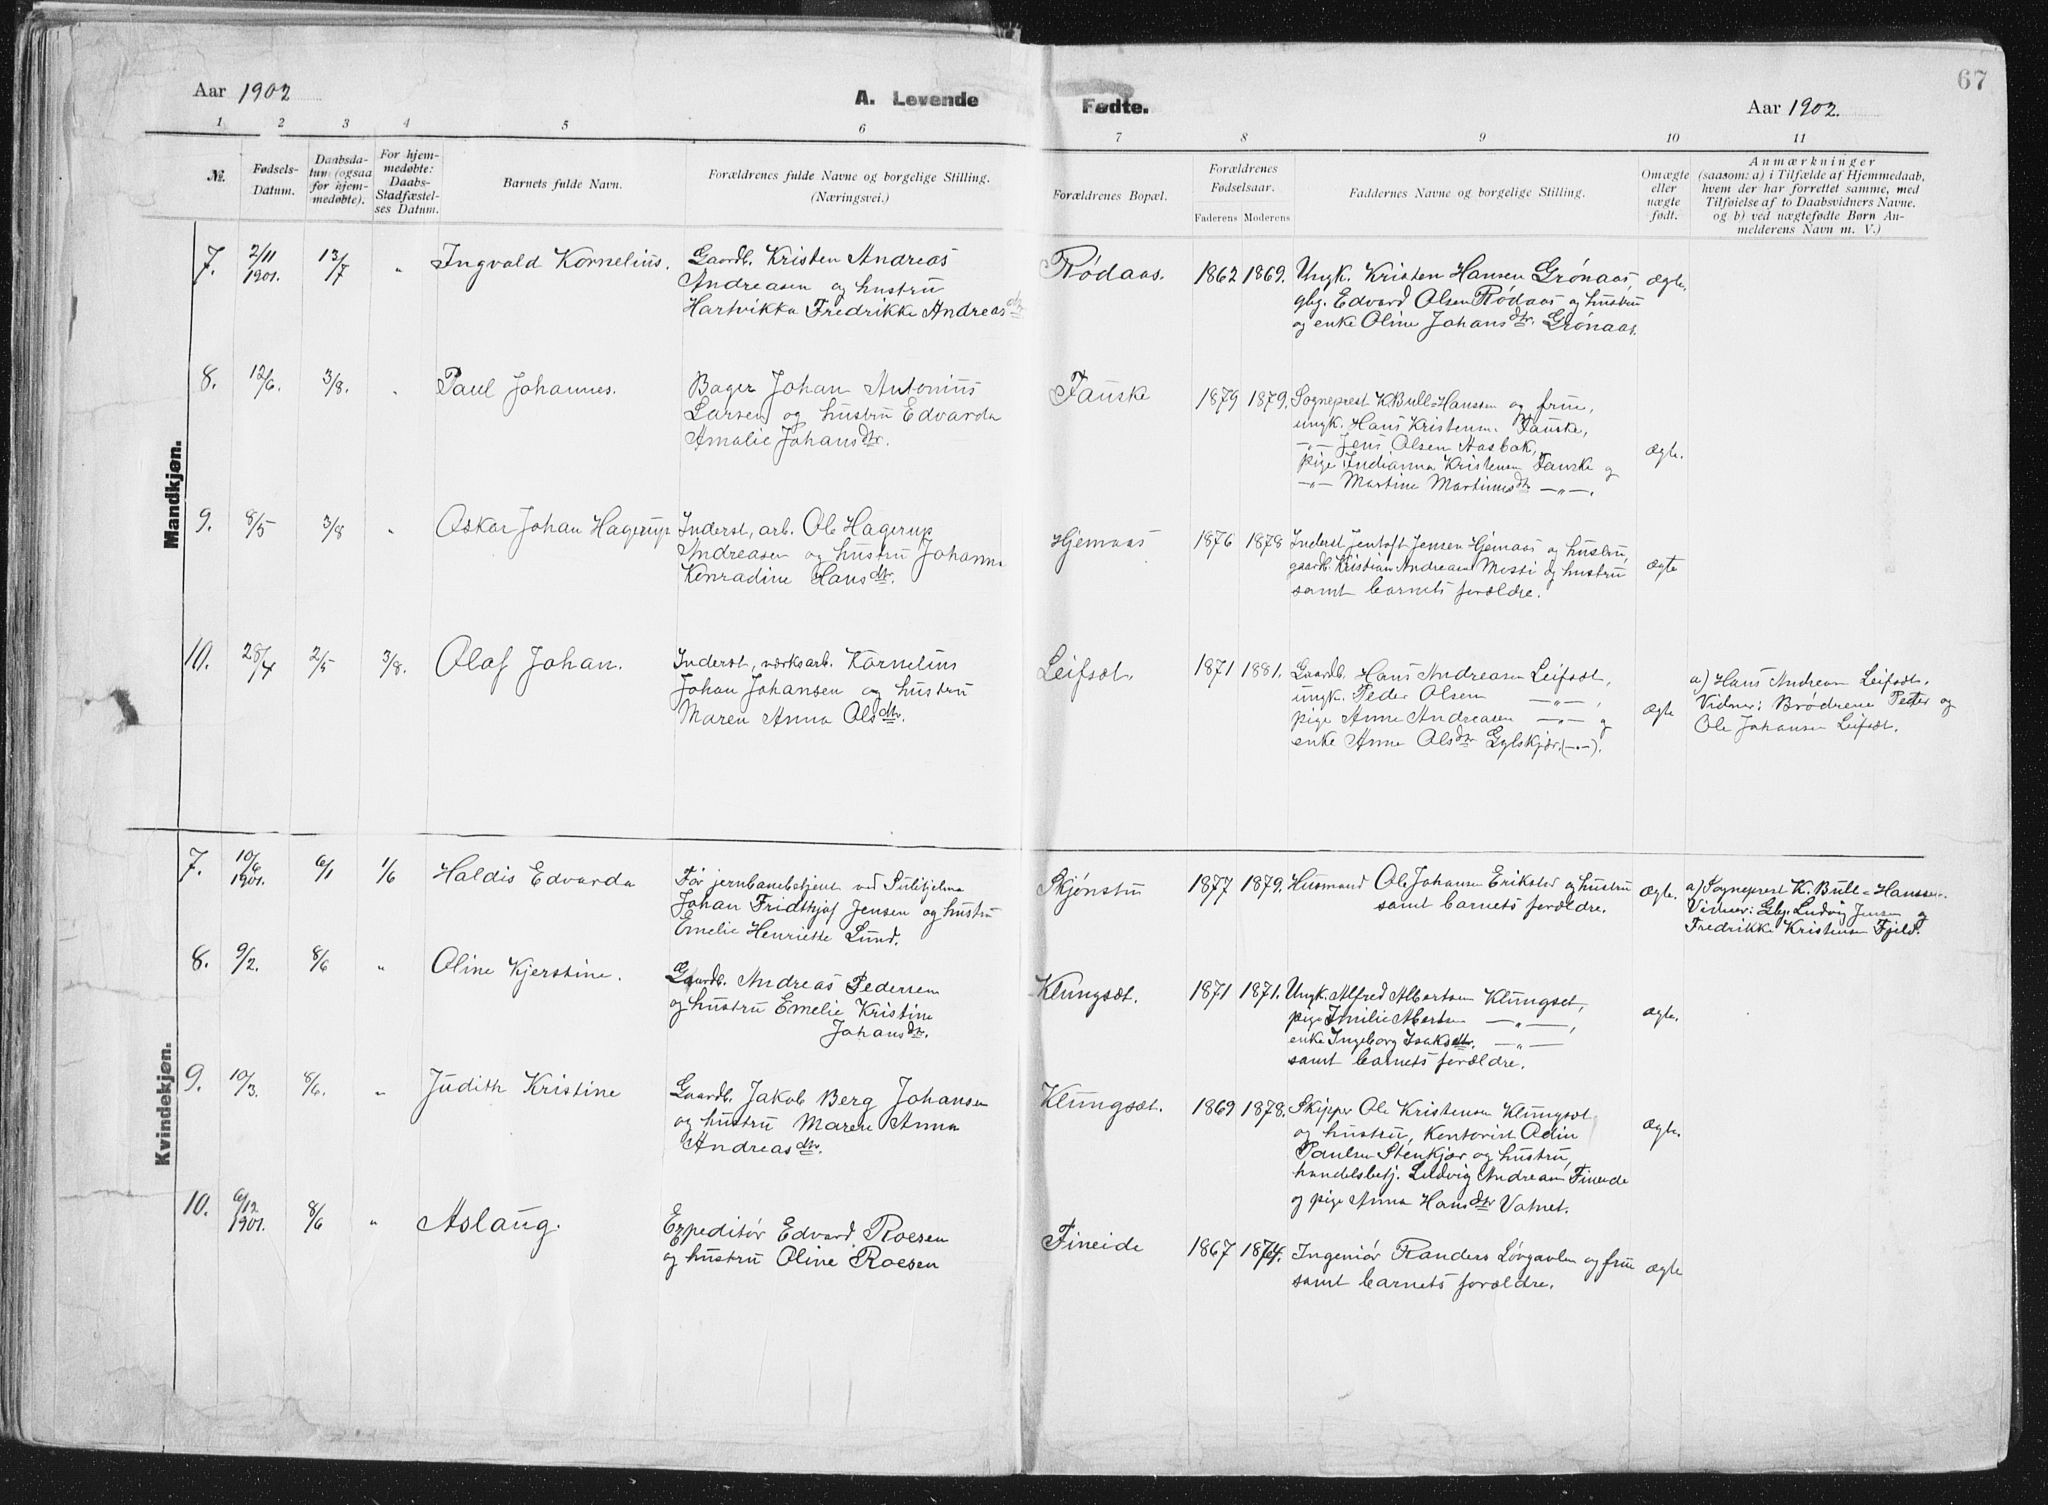 67
Aar 1902
A. Levende Fødte.
Aar 1902.
1 2 3 4 5 6 7 8 9 10 11
№.
Fødsels-
Datum.
Daabsda-
tum (ogsaa
for hjem-
medøbte).
For hjem-
medøbte:
Daabs-
Stadfæstel-
ses Datum.
Barnets fulde Navn.
Forældrenes fulde Navne og borgelige Stilling.
(Næringsvei.)
Forældrenes Bopæl.
Forældrenes
Fødselsaar.
Faderens Moderens
Faddernes Navne og borgelige Stilling.
Om ægte
eller
uægte
født.
Anmærkninger
(saasom: a) i Tilfælde af Hjemmedaab,
hvem der har forrettet samme, med
Tilføielse af to Daabsvidners Navne,
og b) ved uægtefødte Børn An-
melderens Navn m. V.)
Mandkjøn.
7. 2/11 1901. 13/7 " Ingvald Kornelius.
Gaardb. Kristen Andreas
Andreasen og hustru
Hartvikka Fredrikke Andreasdtr
Rödaas. 1862 1869.
Ungk. Kristen Hansen Grönaas,
gbg. Edvard Olsen Rödaas og hustru
og enke Oline Johansdtr. Grönaas.
ægte.
8. 12/6. 3/8. " Paul Johannes.
Bager Johan Antonius
Larsen og hustru Edvarda
Amalie Johansdtr.
Fauske 1879 1879.
Sogneprest K. Bull-Hanssen og frue,
ungk. Hans Kristensen Fauske,
—"— Jens Olsen Aasbak,
pige Indianna Kristensen Fauske og
—"— Martine Martinusdtr —"—.
ægte.
9. 8/5 3/8 " Oskar Johan Hagerup
Inderst, arb. Ole Hagerup
Andreasen og hustru Johanna
Konradine Hansdtr.
Hjemaas 1876 1878
Inderst Jentoft Jensen Hjemaas og hustru,
gaardb. Kristian Andreasen Mosti og hustru
samt barnets forældre.
ægte
10. 28/4 2/5 3/8. Olaf Johan.
Inderst, værksarb. Kornelius
Johan Johansen og hustru
Maren Anna Olsdtr.
Leifsæt. 1871 1881.
Gaardb. Hans Andreasen Leifsæt,
ungk. Peder Olsen —"—,
pige Anne Andreasen —"— og
enke Anne Olsdtr Gylskjær. (—"—).
ægte
a) Hans Andreasen Leifsæt.
Vidner: Brödrene Petter og
Ole Johansen Leifsæt.
Kvindekjøn.
7. 10/6 1901. 6/1 1/6 Haldis Edvarda
Før jernbanebetjent ved Sulitjelma
Johan Fridthjof Jensen og hustru
Emelie Henriette Lund.
Skjönstu 1877 1879.
Husmand Ole Johansen Erikstad og hustru
samt barnets forældre.
ægte.
a) Sogneprest K. Bull-Hanssen.
Vidner: Gbg. Ludvig Jensen og
Fredrikke Kristensen Fjeld.
8. 9/2. 8/6 " Oline Kjerstine.
Gaardb. Andreas Pedersen
og hustru Emelie Kristine
Johansdtr.
Klungsæt. 1871 1871.
Ungk. Alfred Albertsen Klungset,
pige Emilie Albertsen —"—,
enke Ingeborg Isaksdtr. —"—
samt barnets forældre.
ægte.
9. 10/3. 8/6. " Judith Kristine
Gaardb. Jakob Berg Johansen
og hustru Maren Anna
Andreasdtr.
Klungsæt. 1869 1878.
Skipper Ole Kristensen Klungsæt
og hustru, Kontorist Odin
Paulsen Stenkjær og hustru,
handelsbetj. Ludvig Andreasen Fineide
og pige Anna Hansdtr Vatnet.
ægte.
10. 6/12 1901. 8/6 " Aslaug.
Expeditör Edvard Roesen
og hustru Oline Roesen
Fineide 1867 1874.
Ingeniör Randers Lövgavlen og frue
samt barnets forældre.
ægte